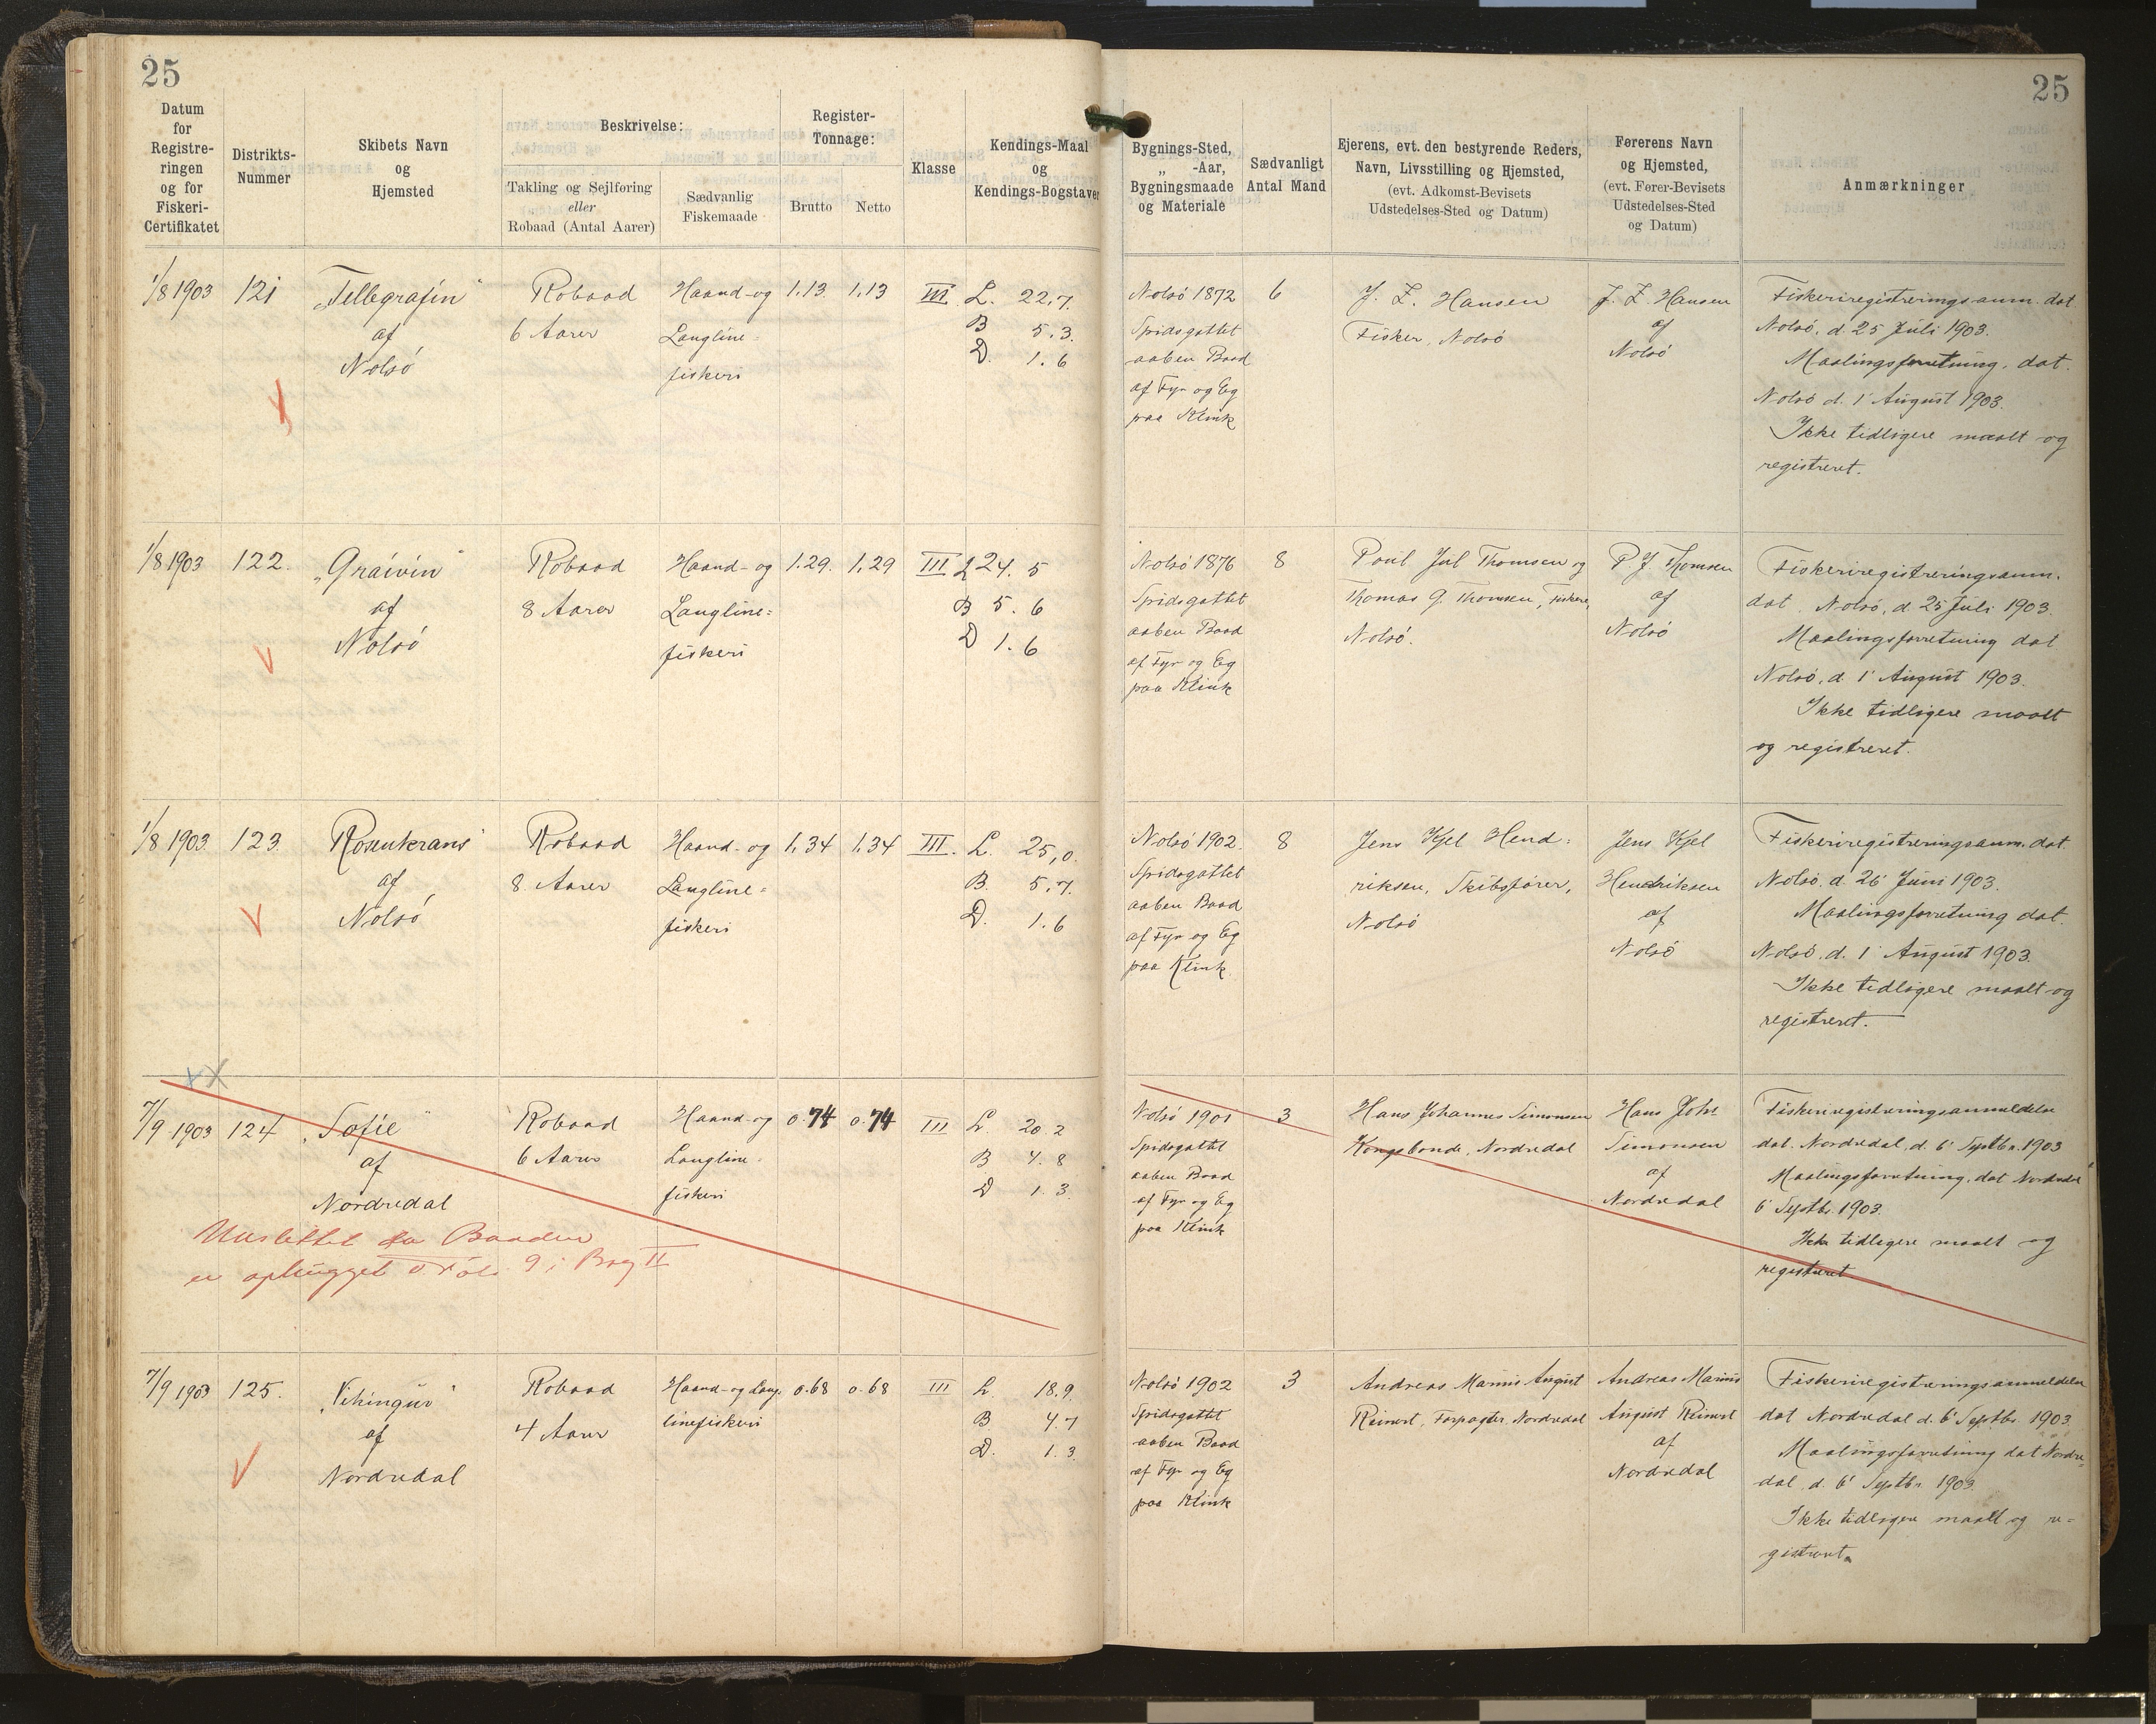 25
25
Datum
for
Registre-
ringen
og for
Fiskeri-
Certifikatet
Distrikts-
Nummer
Skibets Navn
og
Hjemsted
Beskrivelse:
Takling og Sejlføring
eller
Robaad (Antal Aarer)
Sædvanlig
Fiskemaade
Register-
Tonnage:
Brutto
Netto
Klasse
Kendings-Maal
og
Kendings-Bogstaver
Bygnings-Sted,
„ -Aar,
Bygningsmaade
og Materiale
Sædvanligt
Antal Mand
Ejerens, evt. den bestyrende Reders,
Navn, Livsstilling og Hjemsted,
(evt. Adkomst-Bevisets
Udstedelses-Sted og Datum)
Førerens Navn
og Hjemsted,
(evt. Fører-Bevisets
Udstedelses-Sted
og Datum)
Anmærkninger
1/8 1903
121
„Tellegrafin"
af
Nolsó
Robaad
6 Aarer
Haand- og
Langline=
fiskeri
1.13
1.13
III
L. 22.7.
B 5.3.
D. 1.6
Nolsó 1872
Spidsgattet
aaben Baad
af Fyr og Eg
paa Klink
6
J. Z. Hansen
Fisker, Nolsó
J. Z. Hansen
af
Nolsó
Fiskeriregistreringsanm. dat.
Nolsó, d. 25 Juli 1903.
Maalingsforretning, dat.
Nolsó d. 1' August 1903.
Ikke tidligere maalt og
registreret.
1/8 1903
122.
„Graivin"
af
Nolsó
Robaad
8 Aarer
Haand- og
Langline=
fiskeri
1.29.
1.29
III
L 24.5
B 5.6
D 1.6
Nolsó 1876
Spidsgattet
aaben Baad
af Fyr og Eg
paa Klink
8
Poul Jul Thomsen og
Thomas J. Thomsen, Fiskere,
Nolsó.
P J. Thomsen
af
Nolsó
Fiskeriregistreringsanm.
dat. Nolsó, d. 25 Juli 1903.
Maalingsforretning dat.
Nolsó, d. 1' August 1903.
Ikke tidligere maalt
og registreret.
1/8 1903
123.
„Rosenkrans"
af
Nolsó
Robaad
8 Aarer
Haand- og
Langline=
fiskeri
1.34
1.34
III.
L. 25,0.
B. 5,7.
D. 1.6
Nolsó 1902.
Spidsgattet
aaben Baad
af Fyr og Eg
paa Klink.
8
Jens Kjel Hend=
riksen, Skibsfører,
Nolsó
Jens Kjel
Hendriksen
af
Nolsó
Fiskeriregistreringsanm. dat.
Nolsó. d. 26' Juni 1903.
Maalingsforretning dat.
Nolsó. d. 1' August 1903.
Ikke tidligere maalt og
registreret.
7/9 1903
124
„Sofie"
af
Nordredal
Robaad
6 Aarer
Haand- og
Langline=
fiskeri
0.74
0.74
III
L. 20.2
B 4.8
D 1.3.
Udslettet da Baaden
er ophugget v. Fol. 9 i Bog II
Nolsó 1901
Spidsgattet
aaben Baad
af Fyr og Eg
paa Klink
3
Hans Johannes Simonsen
Kongsbonde, Nordredal
Hans Johs
Simonsen
af
Nordredal
Fiskeriregistreringsanmeldelse
dat. Nordredal, d. 6' Septbr. 1903
Maalingsforretning, dat Nordredal
6' Septbr. 1903.
Ikke tidligere maalt og
registreret
7/9 1903
125.
„Vikingur"
af
Nordredal
Robaad
4 Aarer
Haand- og Lang-
linefiskeri
0.68
0.68
III
L. 18.9.
B 4.7
D. 1.3.
Nolsó 1902
Spidsgattet
aaben Baad
af Fyr og Eg
paa Klink
3
Andreas Marius August
Reinert, Forpagter, Nordredal
Andreas Marius
August Reinert
af
Nordredal
Fiskeriregistreringsanmeldelse
dat Nordredal d. 6' Septbr. 1903.
Maalingsforretning dat Nordre=
dal, d. 6' Septbr. 1903.
Ikke tidligere maalt og re=
gistreret.